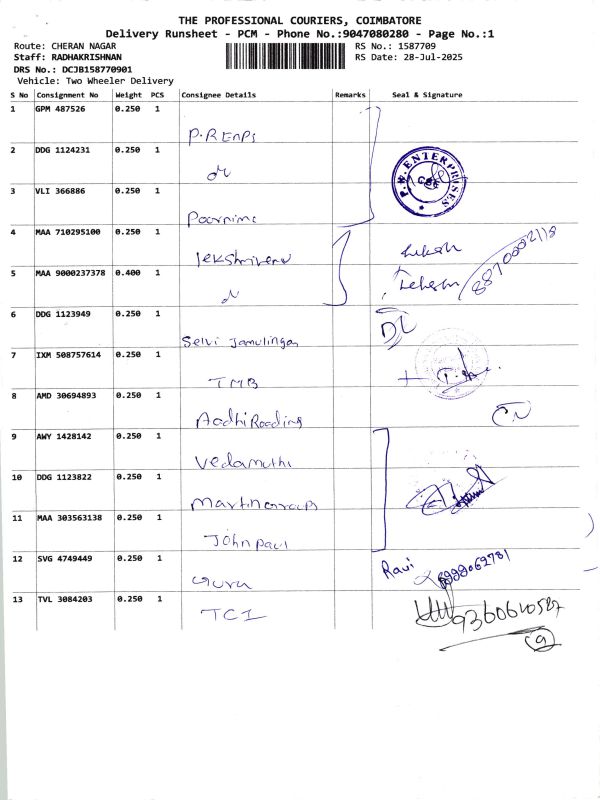 THE PROFESSIONAL COURIERS, COIMBATORE
Delivery Runsheet - PCM - Phone No.:9047080280 - Page No.:1
Route: CHERAN NAGAR RS No.: 1587709
Staff: RADHAKRISHNAN RS Date: 28-Jul-2025
DRS No.: DCJB158770901
Vehicle: Two Wheeler Delivery
S No Consignment No Weight PCS Consignee Details Remarks Seal & Signature
1 GPM 487526 0.250 1
2 DDG 1124231 0.250 1
P.N ENTERPRISES
CBE
3 VLI 366886 0.250 1
Poornima
4 MAA 710295100 0.250 1
5 MAA 9000237378 0.400 1
6 DDG 1123949 0.250 1
Selvi
7 IXM 508757614 0.250 1
TMB
8 AMD 30694893 0.250 1
Aadhi
9 AWY 1428142 0.250 1
Vedamuthi
10 DDG 1123822 0.250 1
Martin Group
11 MAA 303563138 0.250 1
John paul
12 SVG 4749449 0.250 1
Guru Ravi
13 TVL 3084203 0.250 1
TCI 9360610587
9